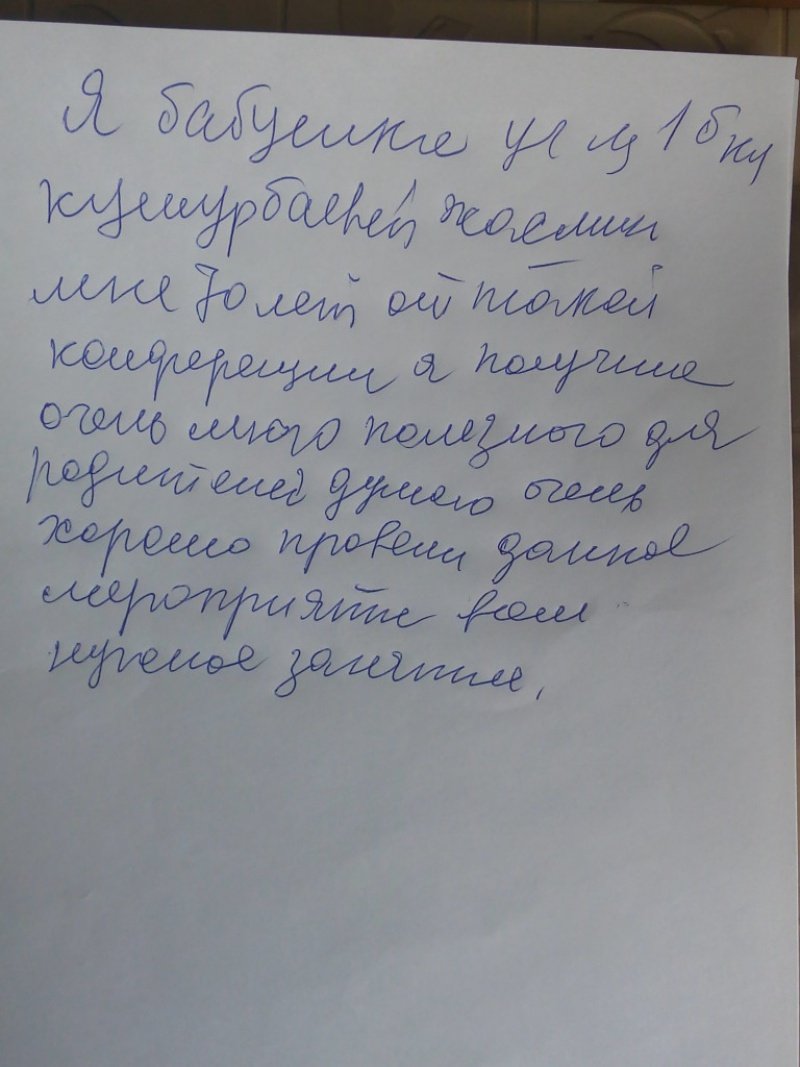 Я бабушка уч ц 1 б кл
кушурбаевой жасмин
мне 70 лет от такой
конференции я получила
очень много полезного для
родителей думаю очень
хорошо провели данное
мероприятие вам
нужное занятие,